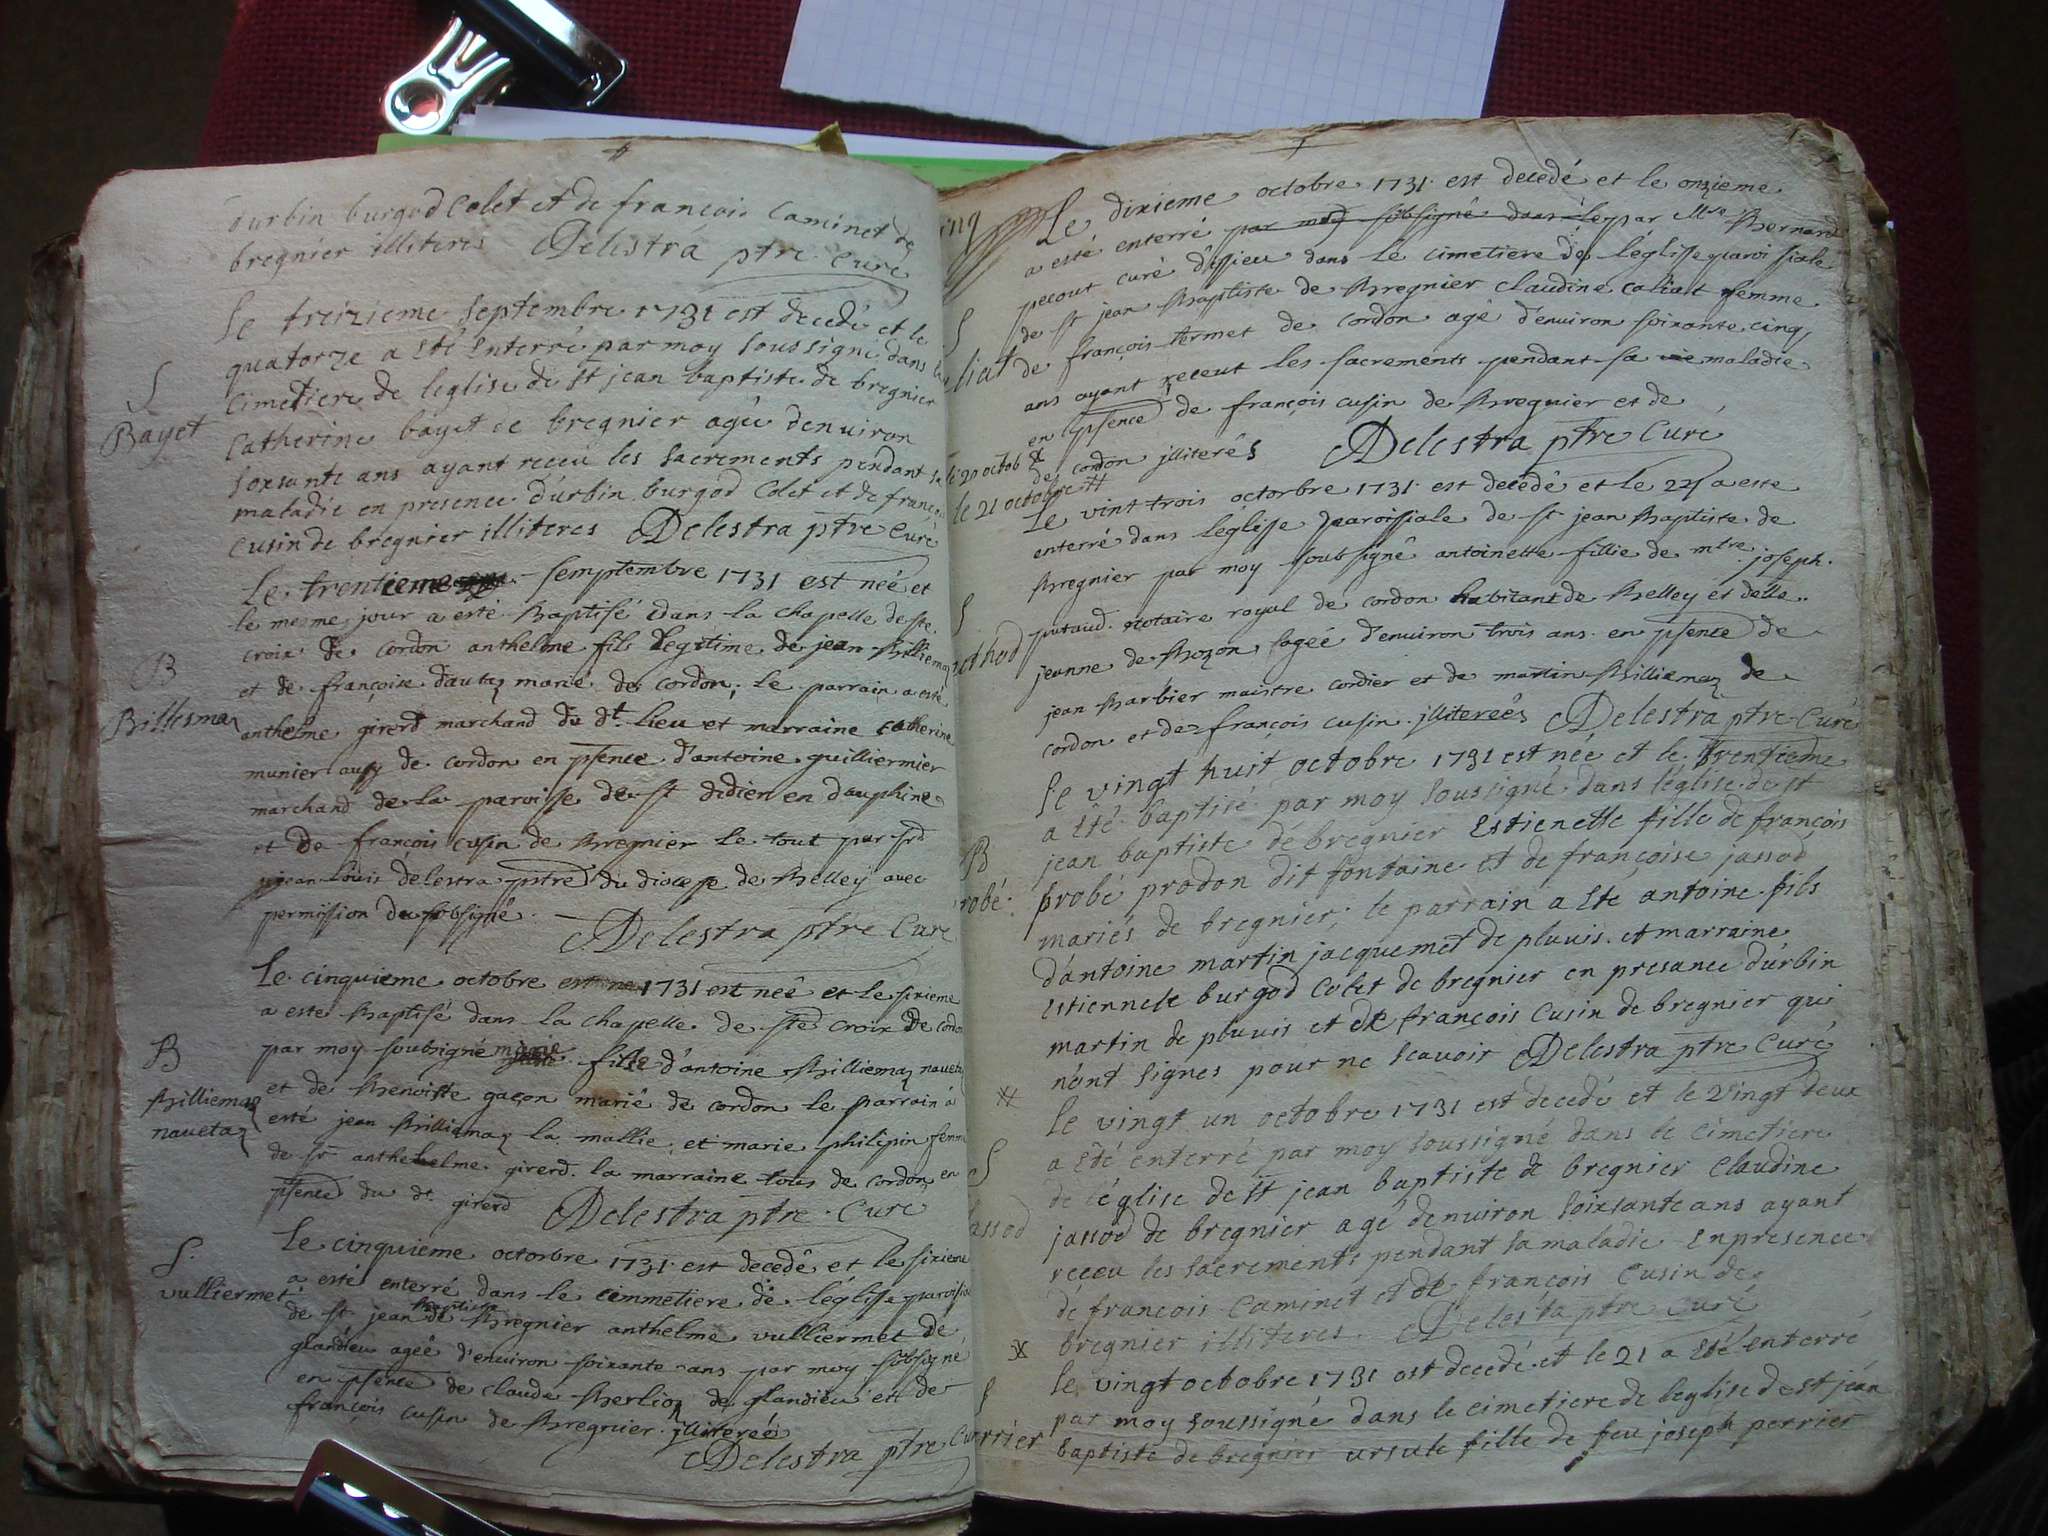 durbin burgod Colet et de françois Caminet de
bregnier illiteres Delestra ptre Curé
le treizieme septembre 1731 est decedé et le
quatorze a été Enterré par moy soussigné dans le
Cimetiere de leglise de st jean baptiste de bregnier
S
Bayet
Catherine bayet de bregnier agée denuiron
soixsante ans ayant reçeu les sacrements pendant sa
maladie en presence d'urbin burgod Colet et de françois
Cusin de bregnier illiteres Delestra ptre Curé
Le trentieme semptembre 1731 est neé et
le mesme jour a esté Baptisé dans la chapelle de ste
croix de cordon anthelme fils legitime de jean Billiemaz
B
Billiemaz
et de françoise dautaz marié de cordon; le parrain a esté
anthelme girerd marchand du dt lieu et marraine catherine
munier aussy de cordon en psence d'antoine guilliermier
marchand de la paroisse de st didier en dauphine
et de françois cusin de Bregnier le tout par
jean Louis delestra pstre du diocesse de Belley avec
permission du sobsigné. Delestra ptre Curé
Le cinquieme octobre 1731 est neé et le sixieme
a esté Baptisé dans la chapelle de ste croix de cordon
B
Billiemaz
navetaz
par moy soubsigné fille d'antoine Billiemaz navetaz
et de Benoitte gaçon marié de cordon le parrain à
esté jean Billiemaz la mallie; et marie philipin femme
de sr anthelme girerd la marraine tous de cordon en
psence du dt girerd Delestra ptre Curé
Le cinquieme octorbre 1731 est decedé et le sixieme
S.
vulliermet
a esté enterré dans le cimmetiere de léglisse paroissiale
de st jean Baptiste de Bregnier anthelme vulliermet de
glandieu ageé d'enuiron soixante ans par moy sobsigné
en psence de claude Berlioz de glandieu et de
françois cusin de Bregnier illitereés
Delestra ptre Curé
Le dixieme octobre 1731 est decedé et le onzieme
a esté enterré par moy sobsigné dans le par Bernard
pecout curé d'issieu dans le cimetiere de léglisse paroissiale
de st jean Baptiste de Bregnier claudine caliat femme
S
liat
de françois termet de cordon agé d'enuiron soixante cinq
ans ayant receut les sacrements pendant sa maladie
en psence de françois cusin de Bregnier et de
de cordon jlliterés Delestra ptre Curé
le 20 octob
le 21 octobre
Le vint trois octorbre 1731 est decédé et le a esté
enterré dans léglisse paroissiale de st jean Baptiste de
Bregnier par moy soubsigné antoinette fillie de mtre joseph
S
putaud notaire royal de cordon habitant de Belley et delle
jeanne de Bozon, ageé d'enuiron trois ans en psence de
jean Barbier maistre cordier et de martin Billiemaz de
cordon et de françois cusin jlliterées Delestra ptre Curé
le vingt huit octobre 1731 est neé et le trentieme
a été baptisé par moy soussigné dans léglise de st
B
robé
jean baptiste dé bregnier Estienette fille de françois
probé prodon dit fontaine et de françoise jassod
mariés de bregnier; le parrain a eté antoine fils
d'antoine martin jacquemet de pluvis et marraine
estiennete burgod Colet de bregnier en presance d'urbin
martin de pluvis et de françois Cusin de bregnier qui
nont signés pour ne scavoir Delestra ptre Curé
le vingt un octobre 1731 est decedé et le vingt deux
a été enterré par moy soussigné dans le Cimetiere
S
jassod
de l'église de st jean baptiste de bregnier Claudine
jassod de bregnier agé denuiron soixsante ans ayant
receu les sacrements pendant sa maladie En presence
dé françois Caminet et de françois Cusin de
bregnier illiteres. Delestra ptre Curé
le vingt octobre 1731 est decedé et le 21 a été Enterré
S
perrier
par moy soussigné dans le Cimetiere de leglise de st jean
baptiste de bregnier ursule fille de feu joseph perrier